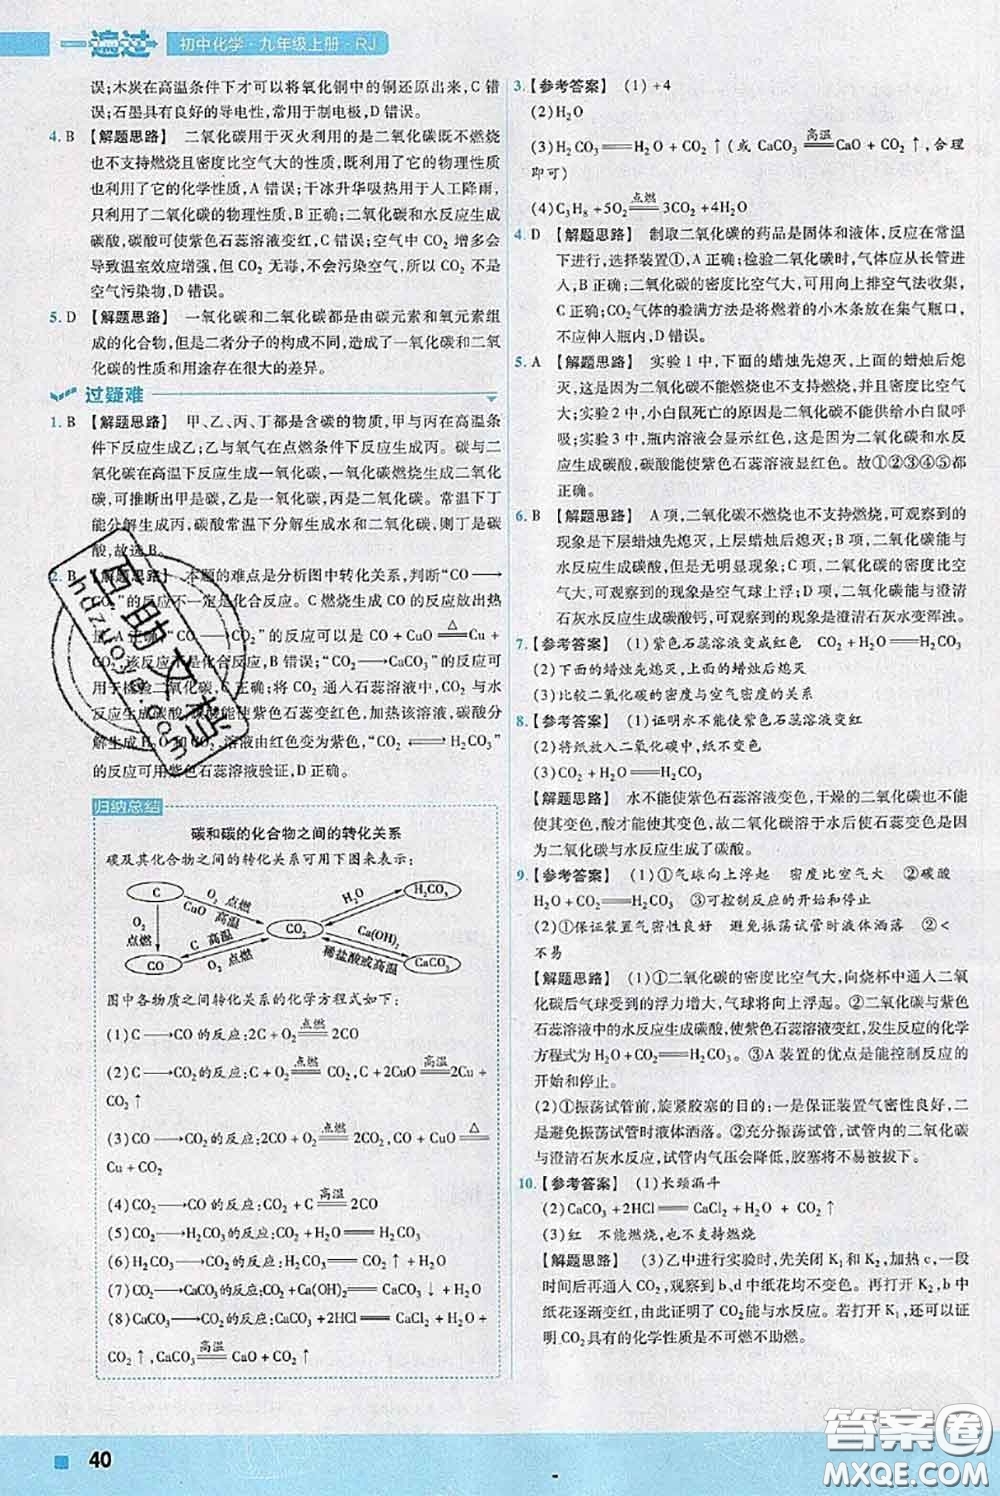 一遍过 初中化学·九年级上册·RJ
误;木炭在高温条件下才可以将氧化铜中的铜还原出来,C 错
误;石墨具有良好的导电性,常用于制电极,D 错误。
4. B 【解题思路】 二氧化碳用于灭火利用的是二氧化碳既不燃烧
也不支持燃烧且密度比空气大的性质,既利用了它的物理性质
也利用了它的化学性质,A 错误;干冰升华吸热用于人工降雨,
只利用了二氧化碳的物理性质,B 正确;二氧化碳和水反应生成
碳酸,碳酸可使紫色石蕊溶液变红,C 错误;空气中 CO₂ 增多会
导致温室效应增强,但 CO₂ 无毒,不会污染空气,所以 CO₂ 不是
空气污染物,D 错误。
5. D 【解题思路】 一氧化碳和二氧化碳都是由碳元素和氧元素组
成的化合物,但是二者分子的构成不同,造成了一氧化碳和二氧
化碳的性质和用途存在很大的差异。
过疑难
1. B 【解题思路】 甲、乙、丙、丁都是含碳的物质,甲与丙在高温条
件下反应生成乙;乙与氧气在点燃条件下反应生成丙。碳与二
氧化碳在高温下反应生成一氧化碳,一氧化碳燃烧生成二氧化
碳,可推断出甲是碳,乙是一氧化碳,丙是二氧化碳。常温下丁
能分解生成丙,碳酸常温下分解生成水和二氧化碳,则丁是碳
酸,故选 B。
2. B 【解题思路】 本题的难点是分析图中转化关系,判断“CO⟶
CO₂”的反应不一定是化合反应。C 燃烧生成 CO 的反应放出热
量,A 正确;“CO⟶CO₂”的反应可以是 CO + CuO =△= Cu +
CO₂,该反应不是化合反应,B 错误;“CO₂⟶CaCO₃”的反应可
用于检验二氧化碳,C 正确;将 CO₂ 通入石蕊溶液,CO₂ 与水反
应生成碳酸,碳酸能使紫色石蕊溶液变红,加热该溶液,碳酸分
解生成 H₂O 和 CO₂,溶液由红色变为紫色,“CO₂⟷H₂CO₃”
的反应可用紫色石蕊溶液验证,D 正确。
归纳总结
碳和碳的化合物之间的转化关系
碳及其化合物之间的转化关系可用下图来表示:
C O₂ 点燃 CuO 高温 H₂O H₂CO₃
O₂ 点燃 CO₂
C 高温 O₂ 点燃 Ca(OH)₂ 稀盐酸或高温
CO CaCO₃
图中各物质之间转化关系的化学方程式如下:
(1) C⟶CO 的反应:2C + O₂ =点燃= 2CO
(2) C⟶CO₂ 的反应:C + O₂ =点燃= CO₂,C + 2CuO =高温= 2Cu +
CO₂↑
(3) CO⟶CO₂ 的反应:2CO + O₂ =点燃= 2CO₂,CO + CuO =△=
Cu + CO₂
(4) CO₂⟶CO 的反应:CO₂ + C =高温= 2CO
(5) CO₂⟶H₂CO₃ 的反应:CO₂ + H₂O = H₂CO₃
(6) H₂CO₃⟶CO₂ 的反应:H₂CO₃ = CO₂↑ + H₂O
(7) CO₂⟶CaCO₃ 的反应:CO₂ + Ca(OH)₂ = CaCO₃↓ + H₂O
(8) CaCO₃⟶CO₂ 的反应:CaCO₃ + 2HCl = CaCl₂ + H₂O +
CO₂↑,CaCO₃ =高温= CaO + CO₂↑
3. 【参考答案】 (1) +4
(2) H₂O
(3) H₂CO₃ = H₂O + CO₂↑(或 CaCO₃ =高温= CaO + CO₂↑,合理
即可)
(4) C₃H₈ + 5O₂ =点燃= 3CO₂ + 4H₂O
4. D 【解题思路】 制取二氧化碳的药品是固体和液体,反应在常温
下进行,选择装置①,A 正确;检验二氧化碳时,气体应从长管进
入,B 正确;二氧化碳的密度比空气大,可用向上排空气法收集,
C 正确;CO₂ 气体的验满方法是将燃着的小木条放在集气瓶口,
不应伸入瓶内,D 错误。
5. A 【解题思路】 实验 1 中,下面的蜡烛先熄灭,上面的蜡烛后熄
灭,这是因为二氧化碳不能燃烧也不支持燃烧,并且密度比空气
大;实验 2 中,小白鼠死亡的原因是二氧化碳不能供给小白鼠呼
吸;实验 3 中,瓶内溶液显示红色,这是因为二氧化碳和水反应
生成碳酸,碳酸能使紫色石蕊溶液显红色。故①②③④⑤都
正确。
6. B 【解题思路】 A 项,二氧化碳不燃烧也不支持燃烧,可观察到的
现象是下层蜡烛先熄灭,上层蜡烛后熄灭;B 项,二氧化碳能与
水反应生成碳酸,但是无明显现象;C 项,二氧化碳密度比空气
大,可观察到的现象是空气球上浮;D 项,二氧化碳能与澄清
石灰水反应生成碳酸钙,可观察到的现象是澄清石灰水变浑浊。
7. 【参考答案】 (1)紫色石蕊溶液变成红色 CO₂ + H₂O = H₂CO₃
(2)下面的蜡烛先熄灭,上面的蜡烛后熄灭
(3)比较二氧化碳的密度与空气密度的关系
8. 【参考答案】 (1)证明水不能使紫色石蕊溶液变红
(2)将纸放入二氧化碳中,纸不变色
(3) CO₂ + H₂O = H₂CO₃
【解题思路】 水不能使紫色石蕊溶液变色,干燥的二氧化碳不
能使紫色石蕊变色,酸才能使其变色,故二氧化碳溶于水后使石蕊变
色是因为二氧化碳与水反应生成了碳酸。
9. 【参考答案】 (1)①气球向上浮起 密度比空气大 ②碳酸
H₂O + CO₂ = H₂CO₃ ③可控制反应的开始和停止
(2)①保证装置气密性良好 避免振荡试管时液体洒落 ②<
不易
【解题思路】 (1)①二氧化碳的密度比空气大,向烧杯中通入二氧
化碳后气球受到的浮力增大,气球将向上浮起。②二氧化碳与紫色
石蕊溶液中的水反应生成碳酸,使紫色石蕊变红,发生反应的化学
方程式为 H₂O + CO₂ = H₂CO₃。③A 装置的优点是能控制反应的
开始和停止。
(2)①振荡试管前,旋紧胶塞的目的:一是保证装置气密性良好,二
是避免振荡试管时液体洒落。②充分振荡试管,试管内的二氧化碳
与澄清石灰水反应,试管内气压会降低,胶塞将不易被拔下。
10. 【参考答案】 (1)长颈漏斗
(2) CaCO₃ + 2HCl = CaCl₂ + H₂O + CO₂↑
(3)红 不能燃烧,也不支持燃烧
【解题思路】 (3)乙中进行实验时,先关闭 K₁ 和 K₂,加热 c,一段
时间后再通入 CO₂,观察到 b、d 中纸花均不变色。再打开 K₂,b 中
纸花逐渐变红,由此可证明了 CO₂ 能与水反应。若打开 K₁,还可以证
明 CO₂ 具有的化学性质是不可燃不助燃。
40
互助文档
hdzuoye.com
答案圈
MXQE.COM